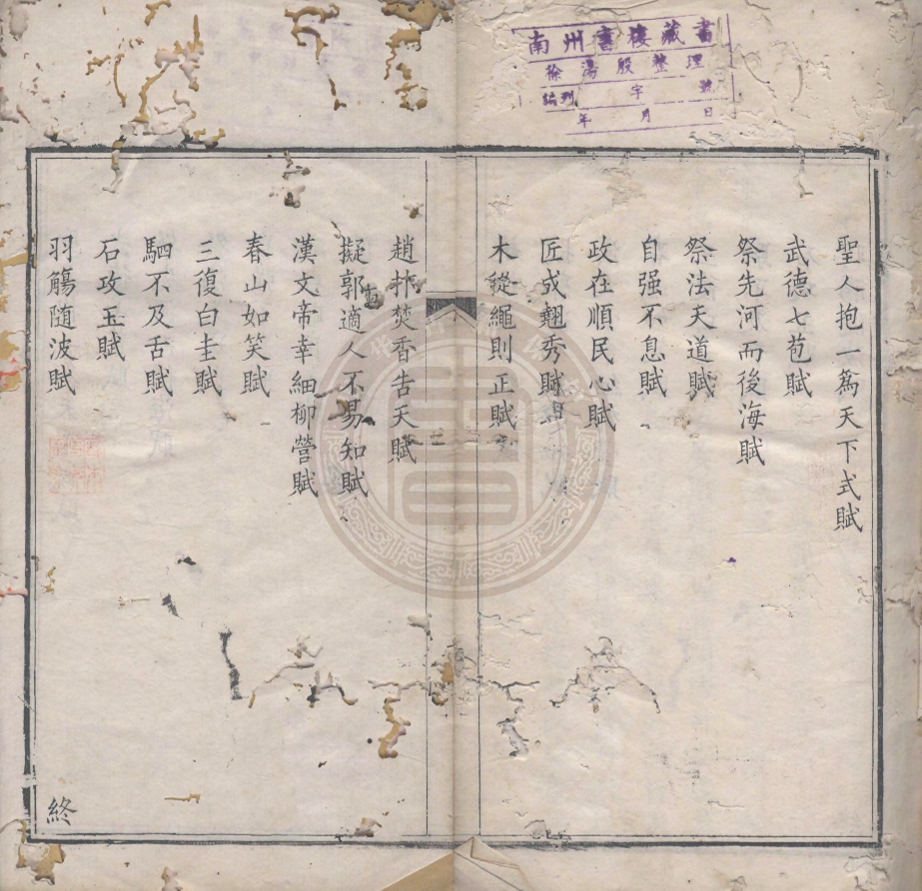 南州書樓藏書
徐湯殷整理
編列 字 號
年 月 日
聖人抱一為天下式賦
武德七苞賦
祭先河而後海賦
祭法天道賦
自强不息賦
政在順民心賦
匠成翹秀賦
木從繩則正賦
趙抃焚香告天賦
擬郭適人不易知賦
漢文帝幸細柳營賦
春山如笑賦
三復白圭賦
駟不及舌賦
石攻玉賦
羽觴随波賦
終